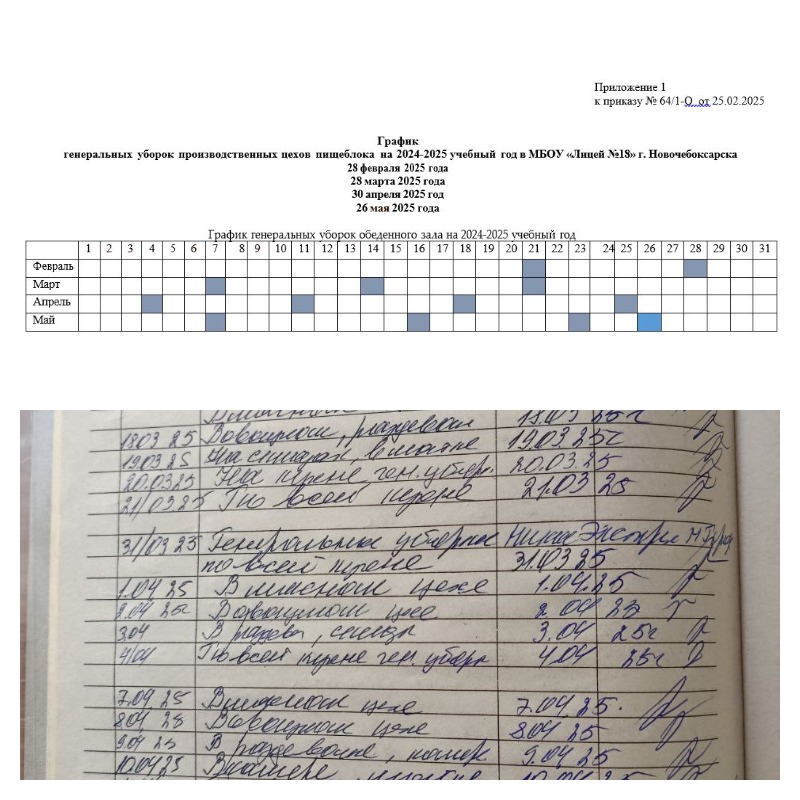 Приложение 1
к приказу № 64/1-О от 25.02.2025
График
генеральных уборок производственных цехов пищеблока на 2024-2025 учебный год в МБОУ «Лицей №18» г. Новочебоксарска
28 февраля 2025 года
28 марта 2025 года
30 апреля 2025 год
26 мая 2025 года
График генеральных уборок обеденного зала на 2024-2025 учебный год
1 2 3 4 5 6 7 8 9 10 11 12 13 14 15 16 17 18 19 20 21 22 23 24 25 26 27 28 29 30 31
Февраль
Март
Апрель
Май
18.03 25 В овощном, раздевал
19.03 25 19.03.25г
20.03.25 На кухне, ген. уборк. 20.03.25
21/03.25 По всей кухне 21.03 25
31/03 25 Генеральная уборка
по всей кухне 31.03 25
1.04 25 В мясном цехе 1.04.25
2.04 25г В овощном цехе 2.04 25
3.04 В 3.04 25г
4/04 По всей кухне ген. уборк 4.04 25г
7.04 25 В цехе 7.04 25.
8.04 25 В овощном цехе 8.04 25
9.04 25 В 9.04 25
10.04 25 В